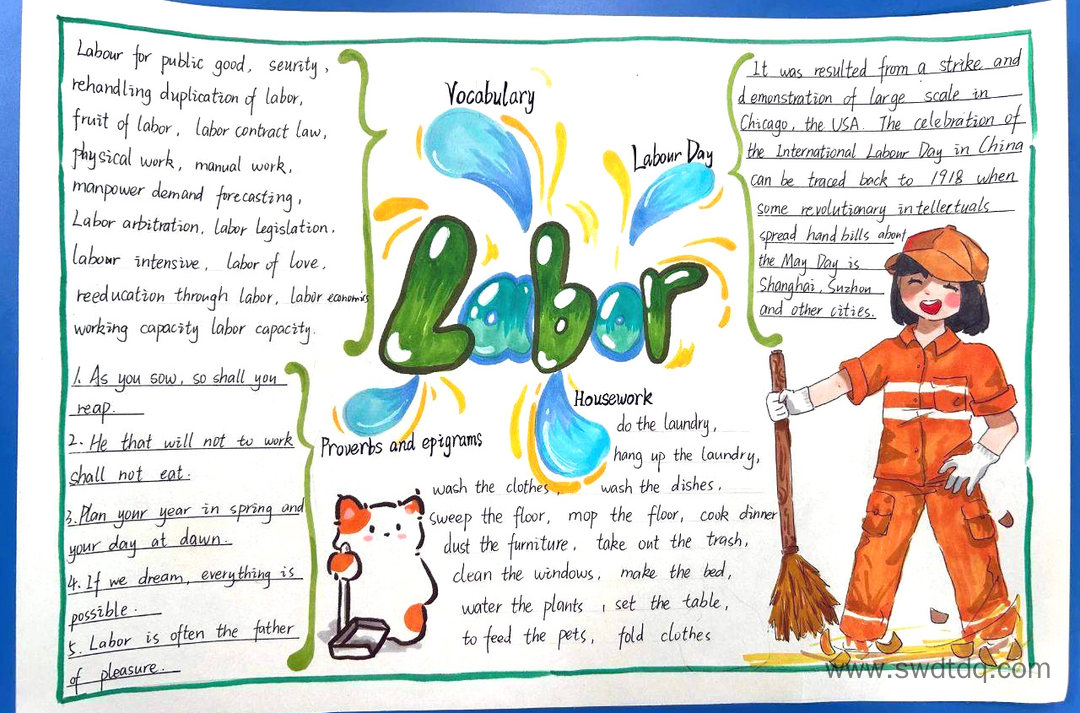 Labour for public good, seurity,
rehandling duplication of labor,
fruit of labor, labor contract law,
physical work, manual work,
manpower demand forecasting,
Labor arbitration, labor legislation.
labour intensive, labor of love.
reeducation through labor, labor economics
working capacity labor capacity.
1. As you sow, so shall you
reap.
2. He that will not to work
shall not eat.
3. Plan your year in spring and
your day at dawn.
4. If we dream, everything is
possible.
5. Labor is often the father
of pleasure.
Vocabulary
Labour Day
Labor
Proverbs and epigrams
Housework
do the laundry,
hang up the laundry,
wash the clothes, wash the dishes,
sweep the floor, mop the floor, cook dinner
dust the furniture, take out the trash,
clean the windows, make the bed,
water the plants, set the table,
to feed the pets, fold clothes
It was resulted from a strike and
demonstration of large scale in
Chicago, the USA. The celebration of
the International Labour Day in China
can be traced back to 1918 when
some revolutionary intellectuals
spread handbills about
the May Day is
Shanghai, Suzhou
and other cities.
www.swdtdq.com